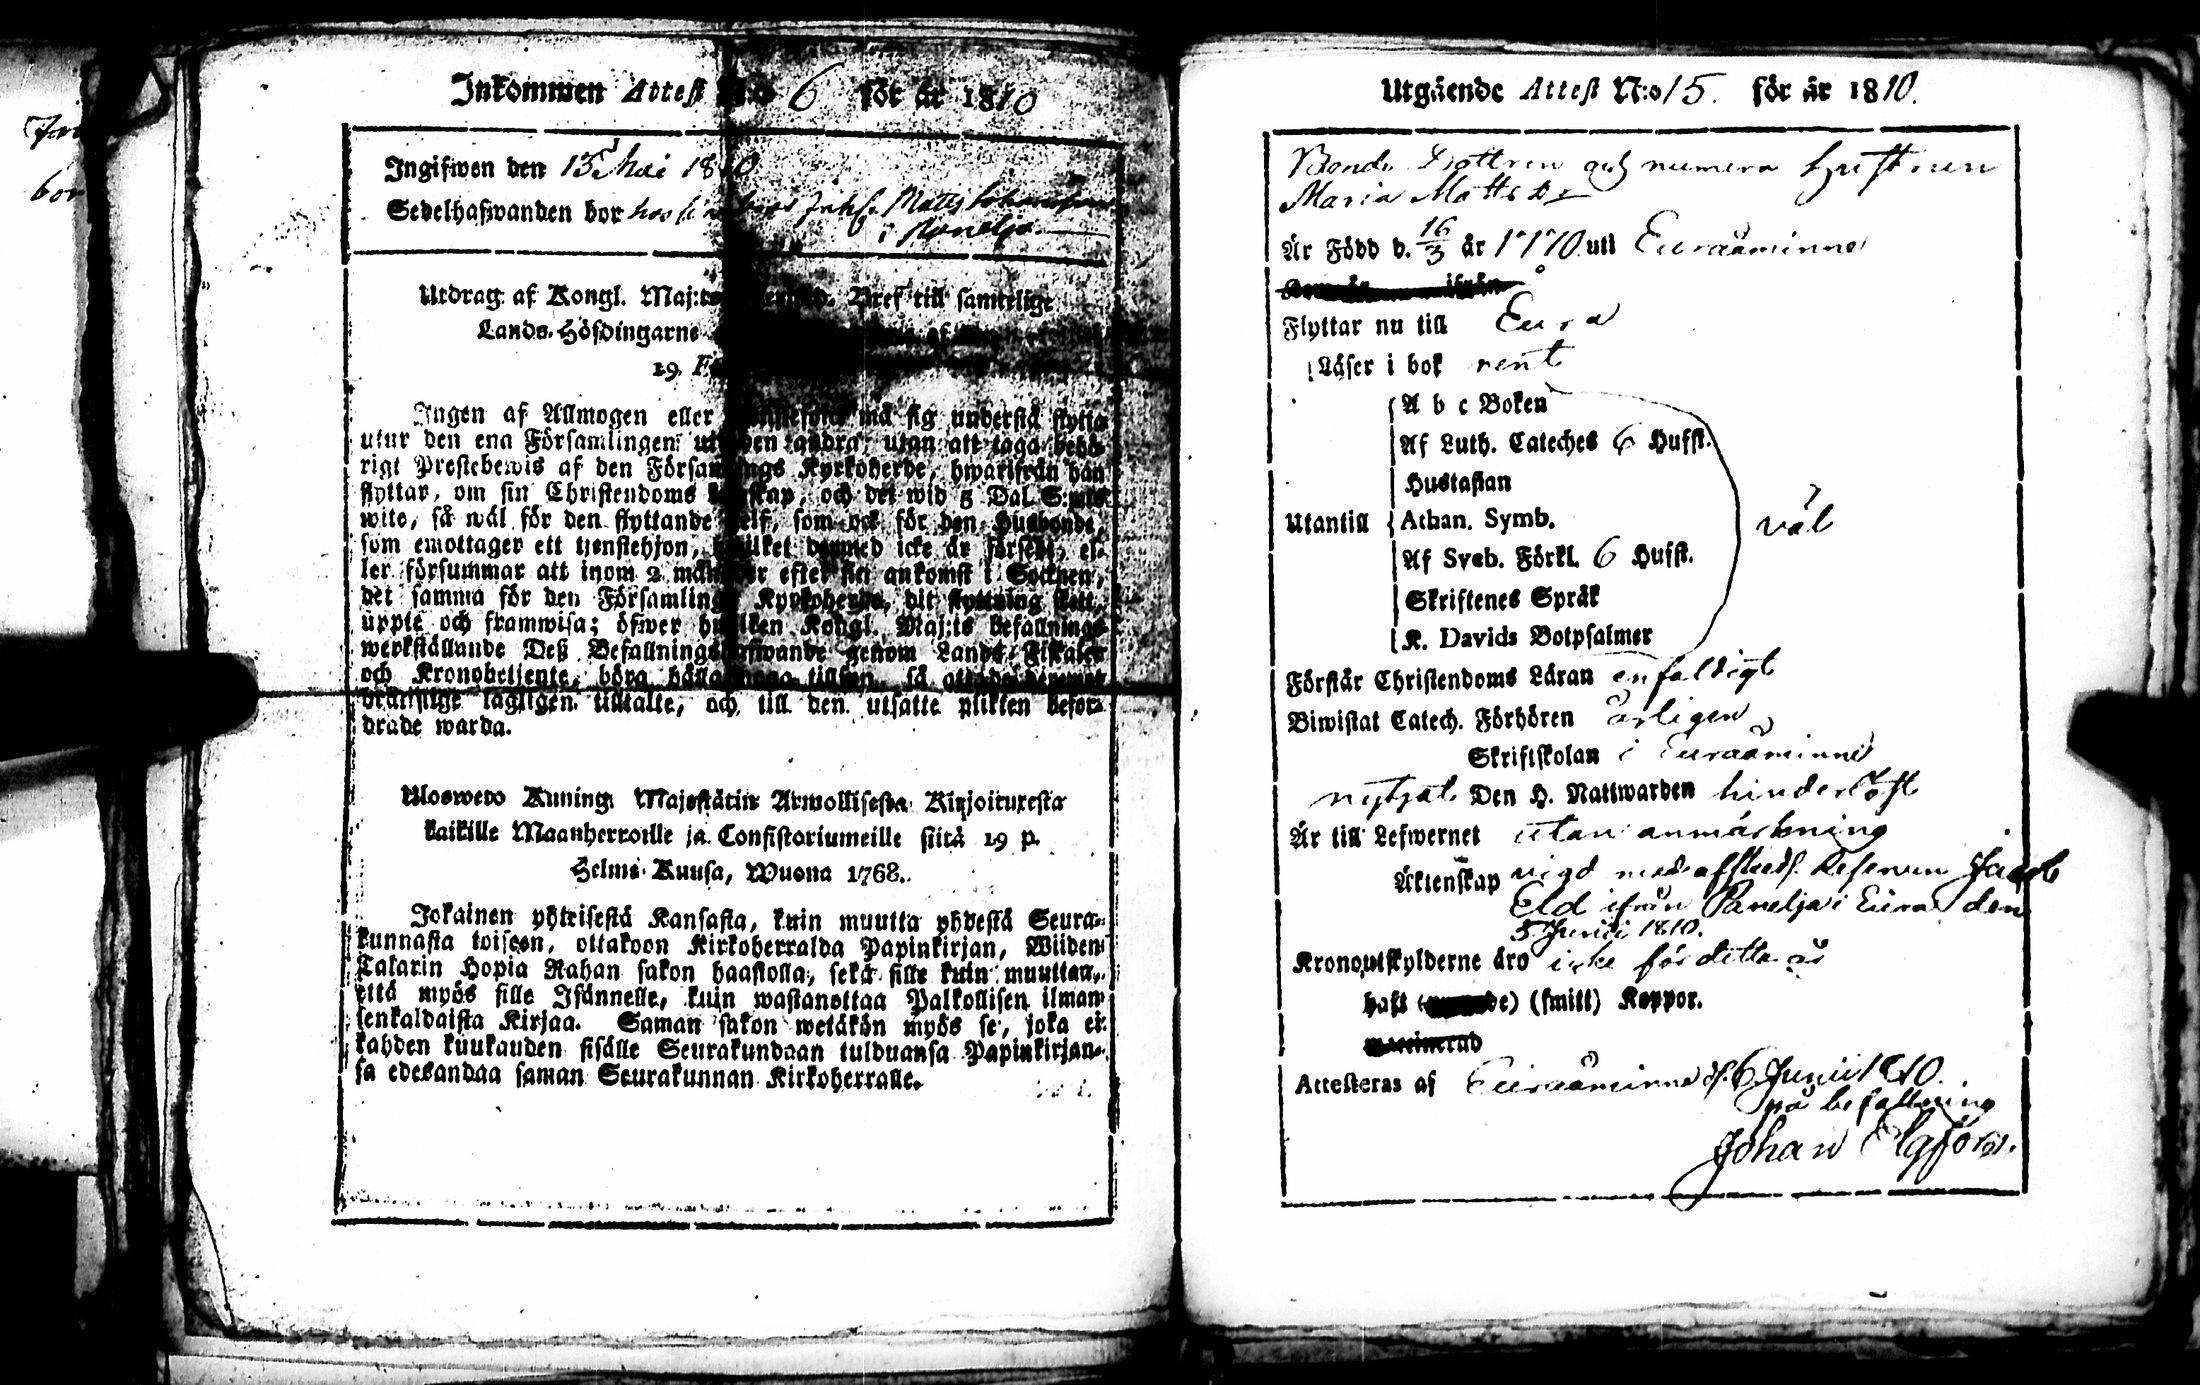 Inkommen Attest N:o 6 för år 1810
Ingifwen den 15 Mai 1810
Sedelhafwanden bor hos Matts Johansson
i Panelja
Utdrag af Kongl. Maj:ts Bref till samtelige
Lands-Höfdingarne af
19
Ingen af Allmogen eller må sig understå flytta
utur den ena Församlingen uti den andra, utan att taga behö-
rigt Prestebewis af den Församlings Kyrkoherde, hwarifrån han
flyttar, om sin Christendoms kunskap, och det wid 5 Dal. S:mts
wite, så wäl för den flyttande self, som ock för den Husbonde,
som emottager ett tjenstehjon, hwilket dermed icke är försedt, el-
ler försummar att inom 2 månader efter sin ankomst i Socknen,
det samma för den Församlings Kyrkoherde, dit flyttning skett,
uppte och framwisa; öfwer hwilken Kongl. Maj:ts befallnings
werkställande Deß Befallningshafwande genom Lands-Fiskaler
och Kronobetjente, böra hålla noga tillsyn, så att de deremot
brättslige lagligen tilltalte, och till den utsatte plikten befor-
drade warda.
Ulosweto Kuning. Majestätin Armollisesta Kirjoituxesta
kaikille Maanherroille ja Consistoriumeille siitä 19 p.
Helmi-Kuusa, Wuona 1768.
Jokainen yhteisestä Kansasta, kuin muutta yhdestä Seura-
kunnasta toiseen, ottakoon Kirkoherralda Papinkirjan, Wiiden
Talarin Hopia Rahan sakon haastolla, sekä sille kuin muuttaa,
että myös sille Isännelle, kuin wastanottaa Palkollisen ilman
senkaldaista Kirjaa. Saman sakon wetäkön myös se, joka ei
kahden kuukauden sisälle Seurakundaan tulduansa Papinkirjan-
sa edesandaa saman Seurakunnan Kirkoherralle.
Utgående Attest N:o 15. för år 1810.
Bonde Dottren och numera hustrun
Maria Matts Dr
Är Född d. 16/3 år 1770 uti Euraåminne
Flyttar nu till Eura
Läser i bok rent
A b c Boken
Af Luth. Cateches 6 Hufst.
Hustaflan
Utantill Athan. Symb. väl
Af Sveb. Förkl. 6 Hufst.
Skriftenes Språk
K. Davids Botpsalmer
Förstår Christendoms Läran enfaldigt
Biwistat Catech. Förhören årligen
Skriftskolan i Euraåminne
nyttjat Den H. Nattwarden hinderlöst
Är till Lefwernet utan anmärkning
Äktenskap vigd med afskeds. Reserven Jacob
Eld ifrån Panelja i Eura den
5 Junii 1810.
Kronoutskylderne äro icke för detta år
haft (smitt) Koppor.
Attesteras af Euraåminne d. 6 Junii 1810.
på befallning
Johan Elgfors.